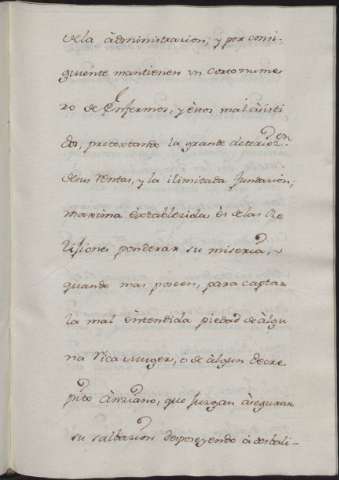 de la administracion, y por consi-
guiente mantienen un corto nume
ro de Enfermos, y estos mal asisti
dos, pretextando la grande deterior.on
de sus rentas, y la ilimitada fundacion,
maxima establecida es de las Re
ligiones ponderar su miseria,
quando mas poseen, para captar
la mal entendida piedad de algu
na rica muger, o de algun decre
pito anciano, que juzgan asegurar
su salbacion desposeyendo a dos tali-